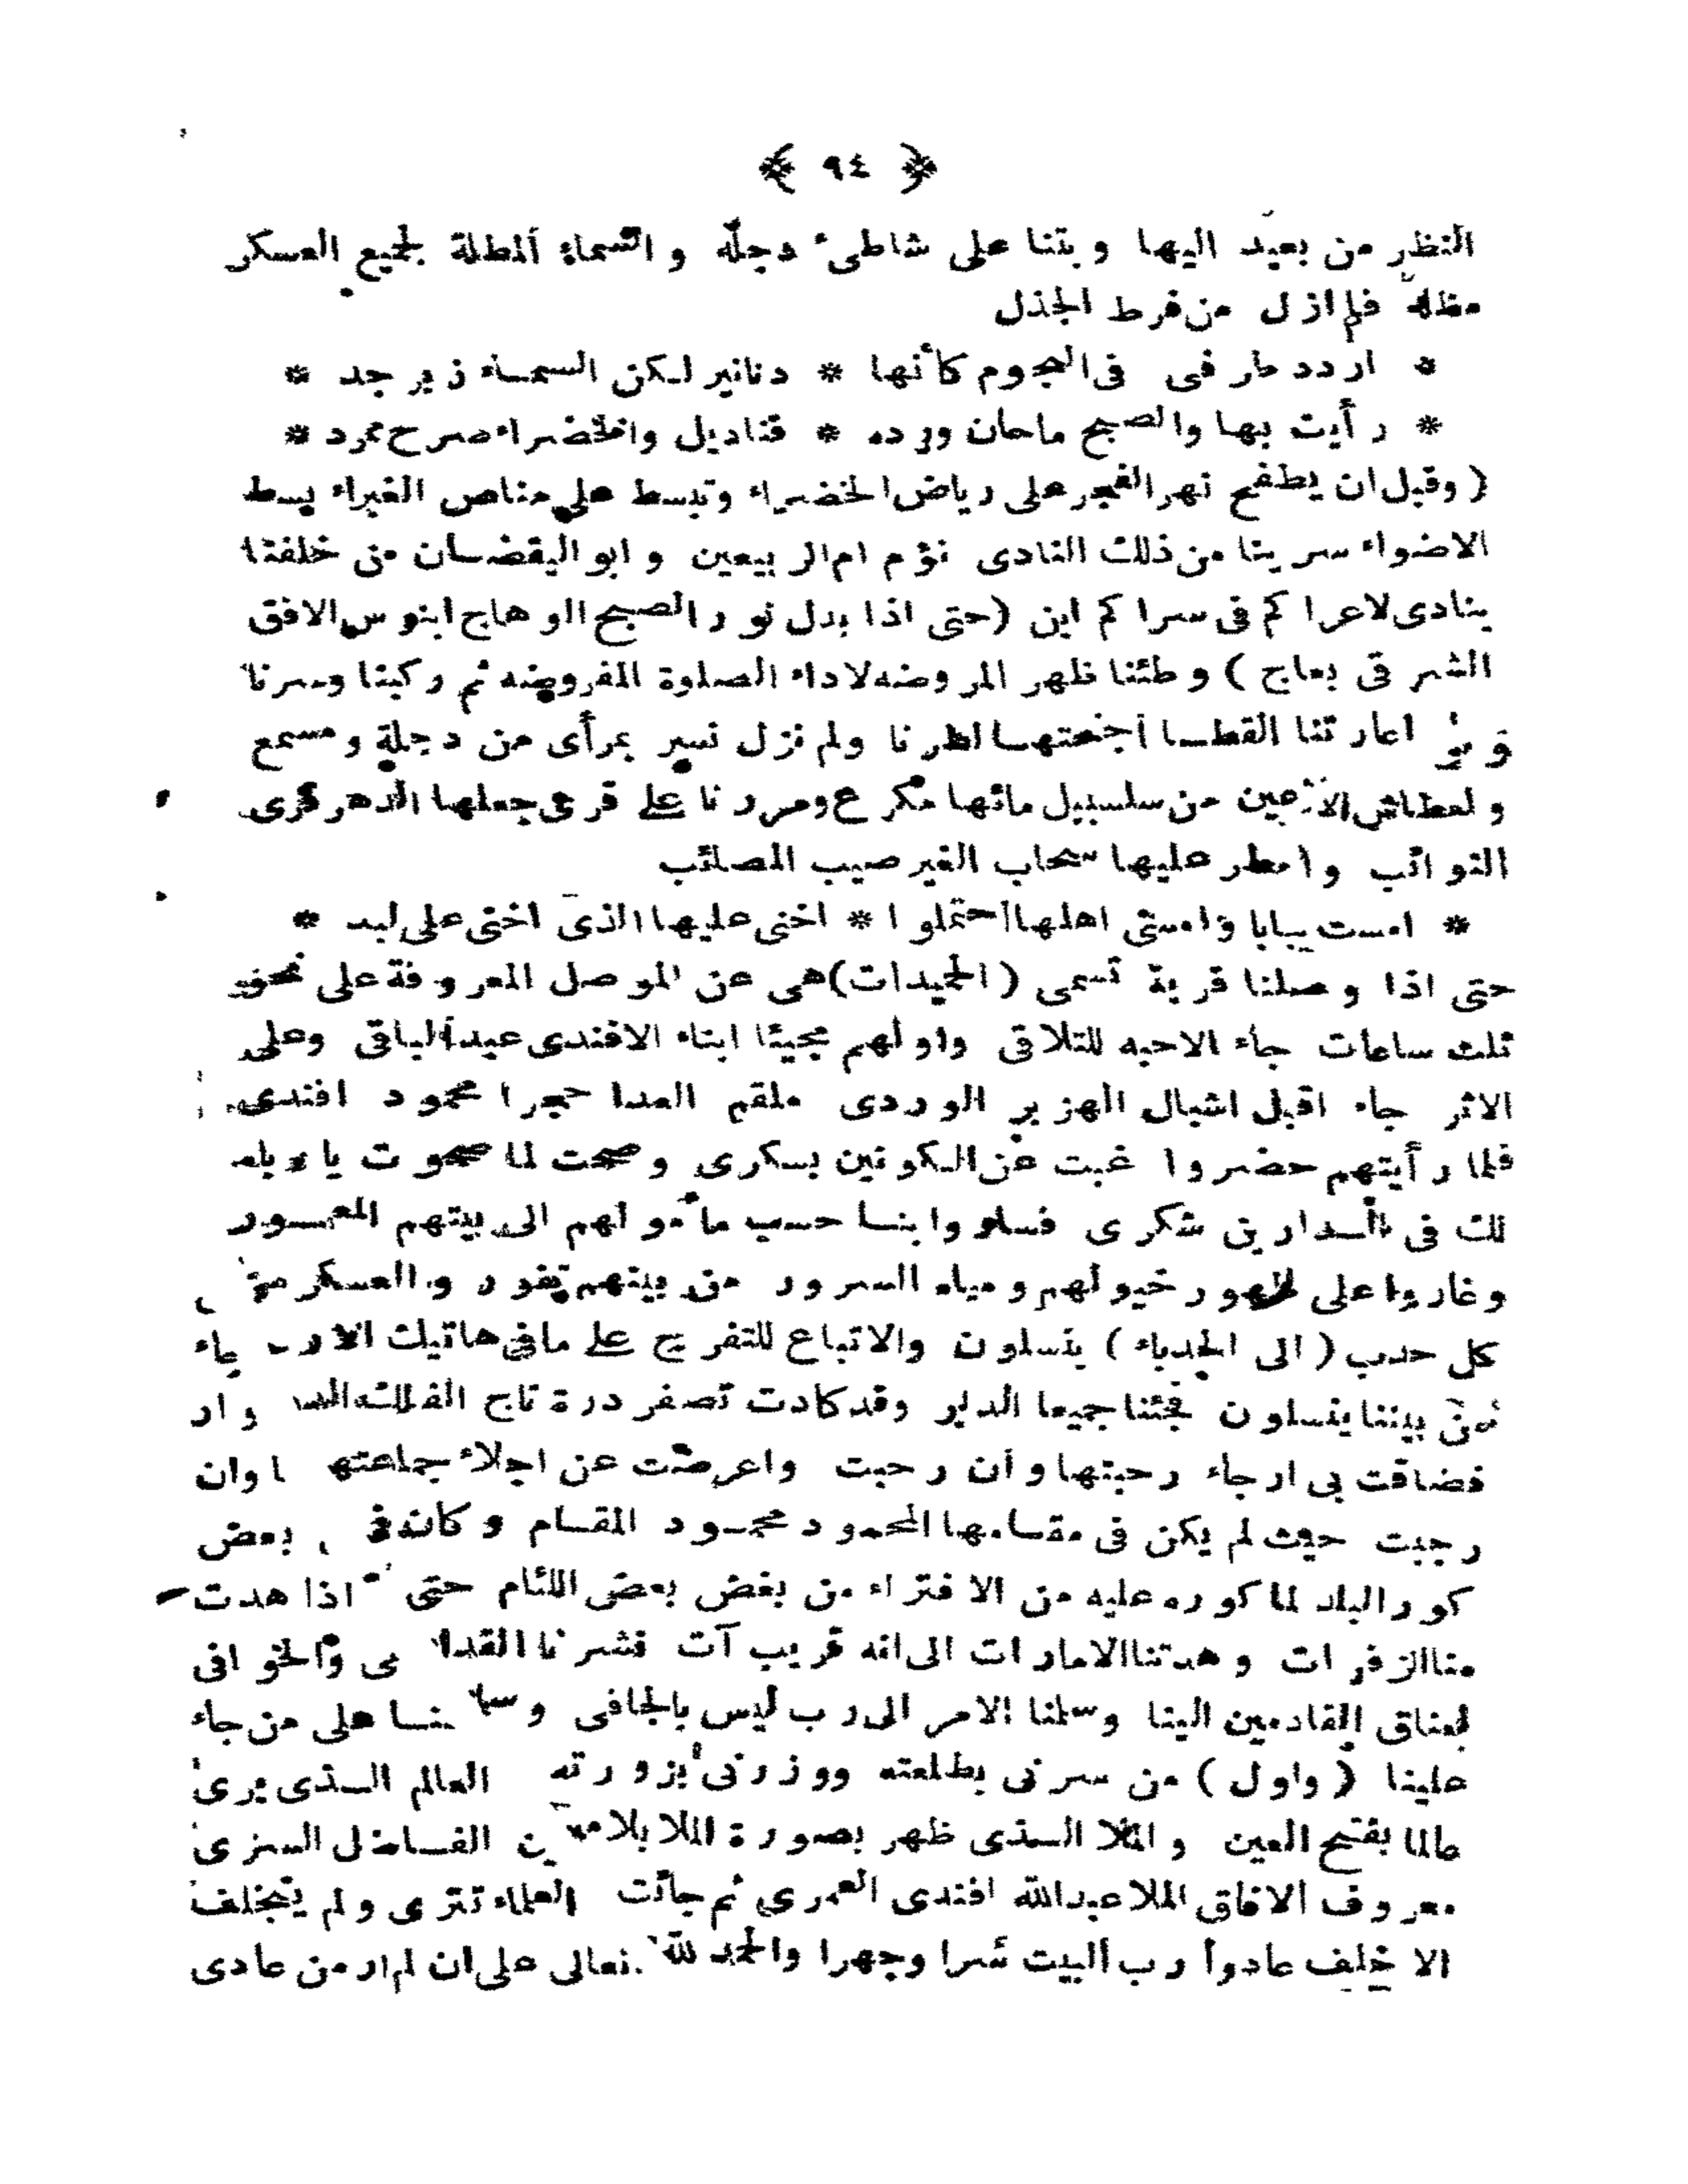 ﴿ ٩٤ ﴾
النظر من بعيد اليها وبتنا على شاطىء دجله والسماء المطلة لجميع العسكر
مظله فلم ازل من فرط الجذل
* اردد طرفى فى النجوم كأنها * دنانير لكن السماء زبرجد *
* رأيت بها والصبح ماحان ورده * قناديل والخضراء صرح ممرد *
( وقبل ان يطفح نهر الفجر على رياض الخضراء وتبسط على مناص الغبراء بسط
الاضواء سرينا من ذلك النادى نؤم ام الربيعين وابو اليقضان من خلفنا
ينادى لاعراكم فى سراكم اين (حتى اذا بدل نور الصبح الوهاج ابنوس الافق
الشرقى بعاج ) وطئنا ظهر المروضه لاداء الصلوة المفروضه ثم ركبنا وسرنا
اعارتنا القطا اجنحتها لطرنا ولم نزل نسير بمرأى من دجلة ومسمع
ولعطاش الاعين من سلسبيل مائها مكرع ومررنا على قرى جعلها الدهر قرى
النوائب وامطر عليها سحاب الغير صيب المصائب
* امست يبابا وامسى اهلها احتملوا * اخنى عليها الذى اخنى على لبد *
حتى اذا وصلنا قرية تسمى (الحميدات) هى عن الموصل المعروفة على نحو
ثلث ساعات جاء الاحبه للتلاقى واولهم مجيئا ابناء الافندى عبد الباقى وعلى
الاثر جاء اقبل اشبال الهزبر الوردى ملقم العدا حجرا محمود افندى
فلما رأيتهم حضروا غبت عن الكونين بسكرى وصحت لما صحوت يا
لك فى الدارين شكرى فسلوا بنا حسب مأمولهم الى بيتهم المعمور
وغاروا على ظهور خيولهم ومياه السرور من بيتهم تفور والعسكر من
كل حدب ( الى الحدباء ) ينسلون والاتباع للتفريج على ما فى هاتيك
من بيننا ينسلون فجئنا جميعا الدير وقد كادت تصفر درة تاج الفلك
فضاقت بى ارجاء رحبتها وان رحبت واعرضت عن اجلاء جماعتها وان
رجبت حيث لم يكن فى مقامها المحمود محمود المقام وكان فى بعض
كور البلد لما كوره عليه من الافتراء من بغض بعض اللئام حتى اذا هدت
منا الزفرات وهدتنا الامارات الى انه قريب آت نشرنا القدامى والخوافى
لعناق القادمين الينا وسلمنا الامر الى رب ليس بالجافى وسلمنا على من جاء
علينا ( واول ) من سرنى بطلعته ووزرنى بزورته العالم الذى يرى
عالما بفتح العين والملا الذى ظهر بصورة الملا بلامين الفاضل السنرى
معروف الافاق الملا عبدالله افندى العمرى ثم جائت العلماء تترى ولم يتخلف
الا خلف عادوا رب البيت سرا وجهرا والحمد لله تعالى على ان لم ار من عادى